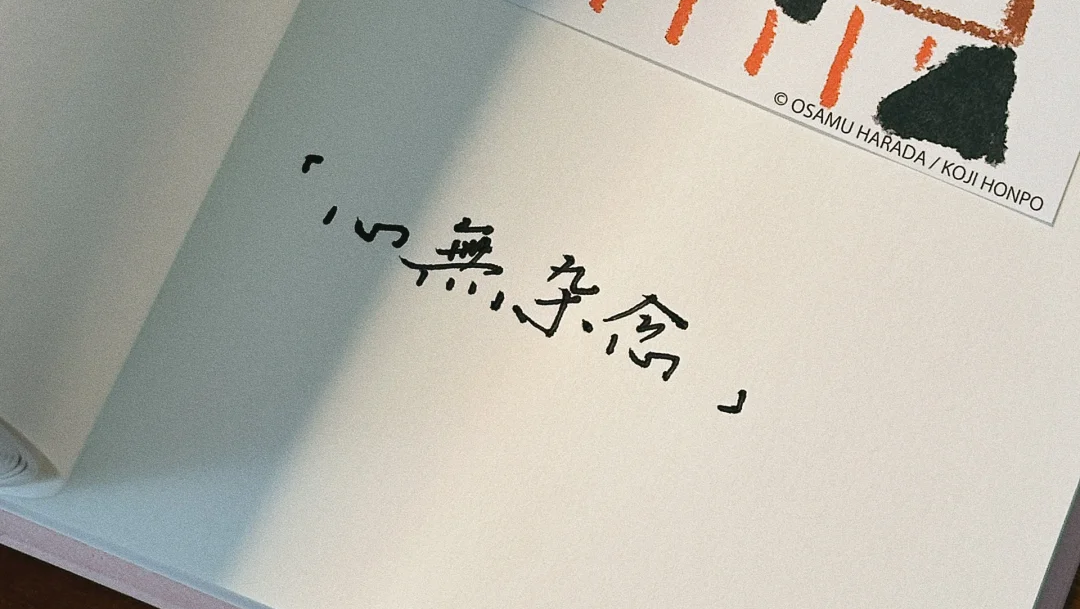 © OSAMU HARADA / KOJI HONPO
「心無杂念」